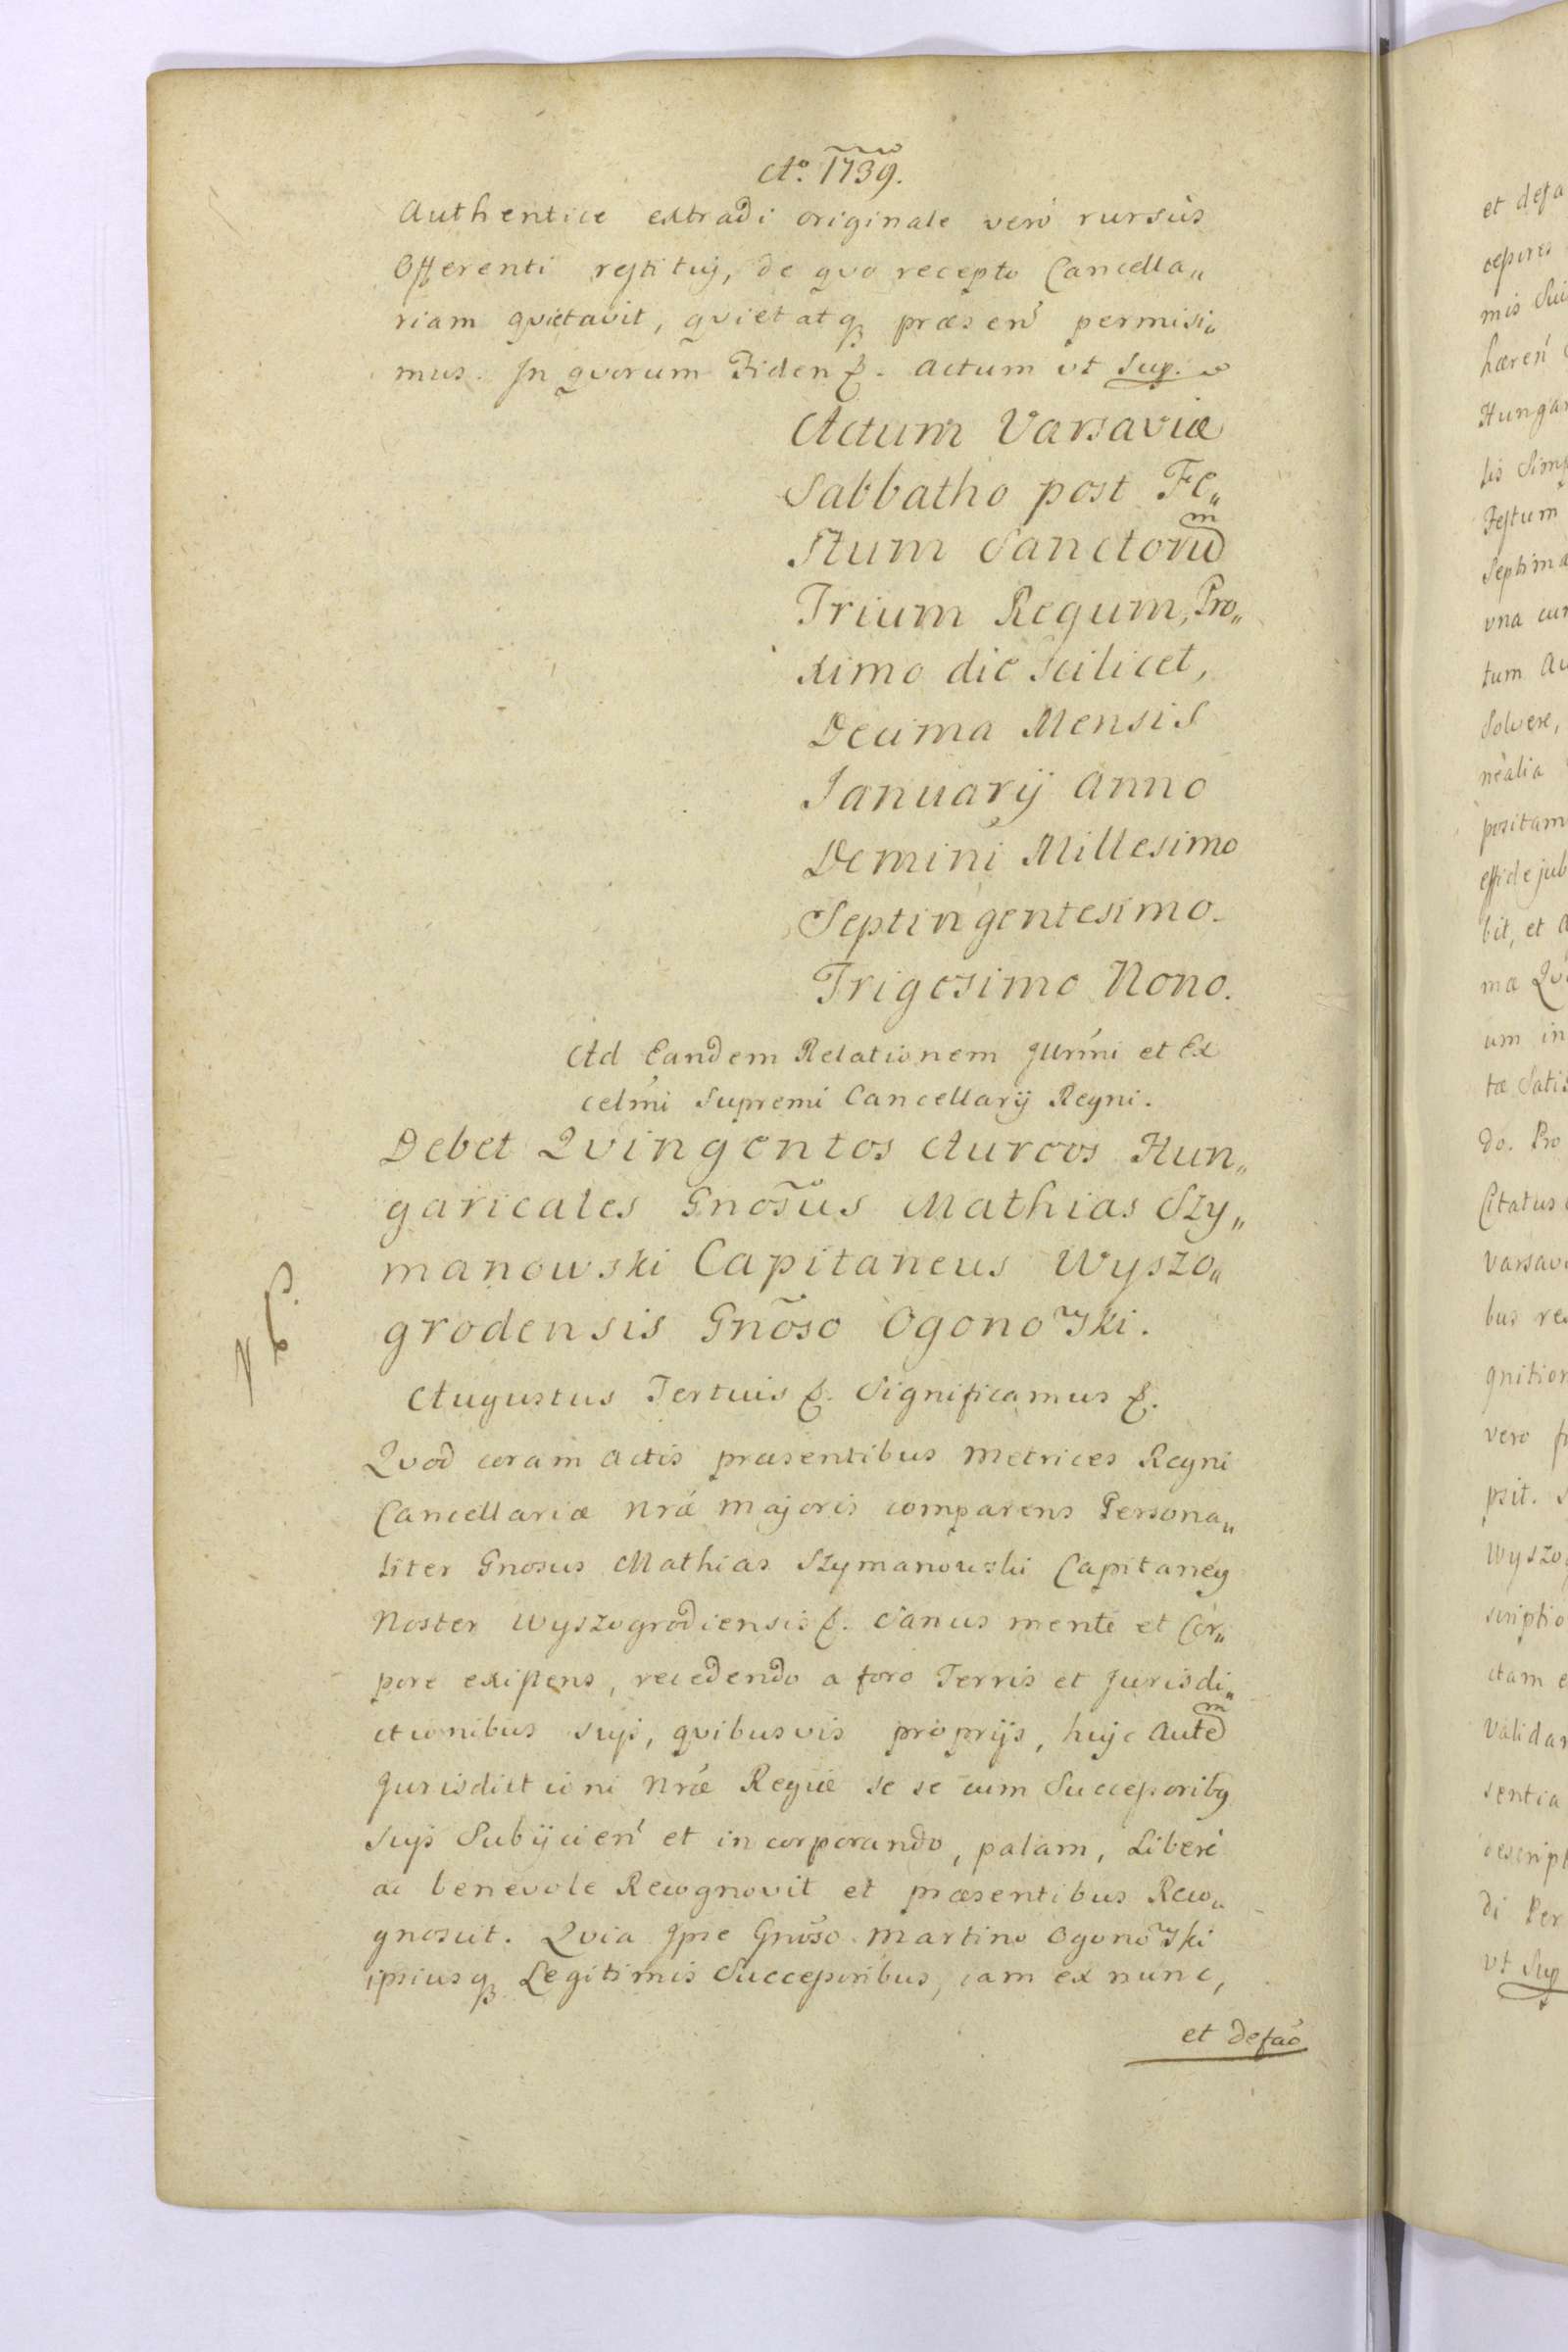 Ao. 1739.
Authentice extradi originale verò rursùs
Offerenti restituj, de qvo recepto Cancella„
riam qvietavit, qvietatq3 præsen' permisi„
mus. In qvorum Fiden &. Actum vt Sup.
Actum Varsaviæ
Sabbatho post Fe„
stum Sanctorum
Trium Regum, Pro„
ximo die scilicet,
Decima Mensis
Januarij Anno
Domini Millesimo
Septingentesimo.
Trigesimo Nono.
Ad Eandem Relationem Jllrmi et Ex
celmi Supremi Cancellarij Regni.
Debet Qvingentos Aureos Hun„
garicales Gnosus Mathias Szy„
manowski Capitaneus Wyszo„
grodensis Gnõso Ogonowski.
Augustus Tertuis &. Significamus &.
Qvod coram Actis præsentibus Metrices Regni
Cancellariæ Nrá Majoris comparens Persona„
liter Gnosus Mathias Szymanowski Capitaney
Noster Wyszogrodiensis &. Sanus mente et Cor„
pore existens, recedendo a foro Terris et Jurisdi„
ctionibus suys, qvibusvis proprijs, huic autem
Jurisdictioni Nrǽ Regiæ se se cum Successoriby
suys Subijcien' et incorporando, palam, Liberè
ac benevole Recognovit et præsentibus Reco„
gnoscit. Qvia Jpse Gnõso Martino Ogonowski
ipsiusq3 Legitimis Successoribus, iam ex nunc,
et defaó
et defa
cessores
mis Sui
hæren'
Hungar
lis Simp
Festum
Septima
vna cum
tum Au
Solvere,
positam
bit, et a
ma Qv
um in
tæ Satis
do. Pro
Citatus
Varsavi
bus re
gnition
vero
psit. S
Wyszo
scriptio
ctam e
Validam
sentia
descript
di Per
vt Sup